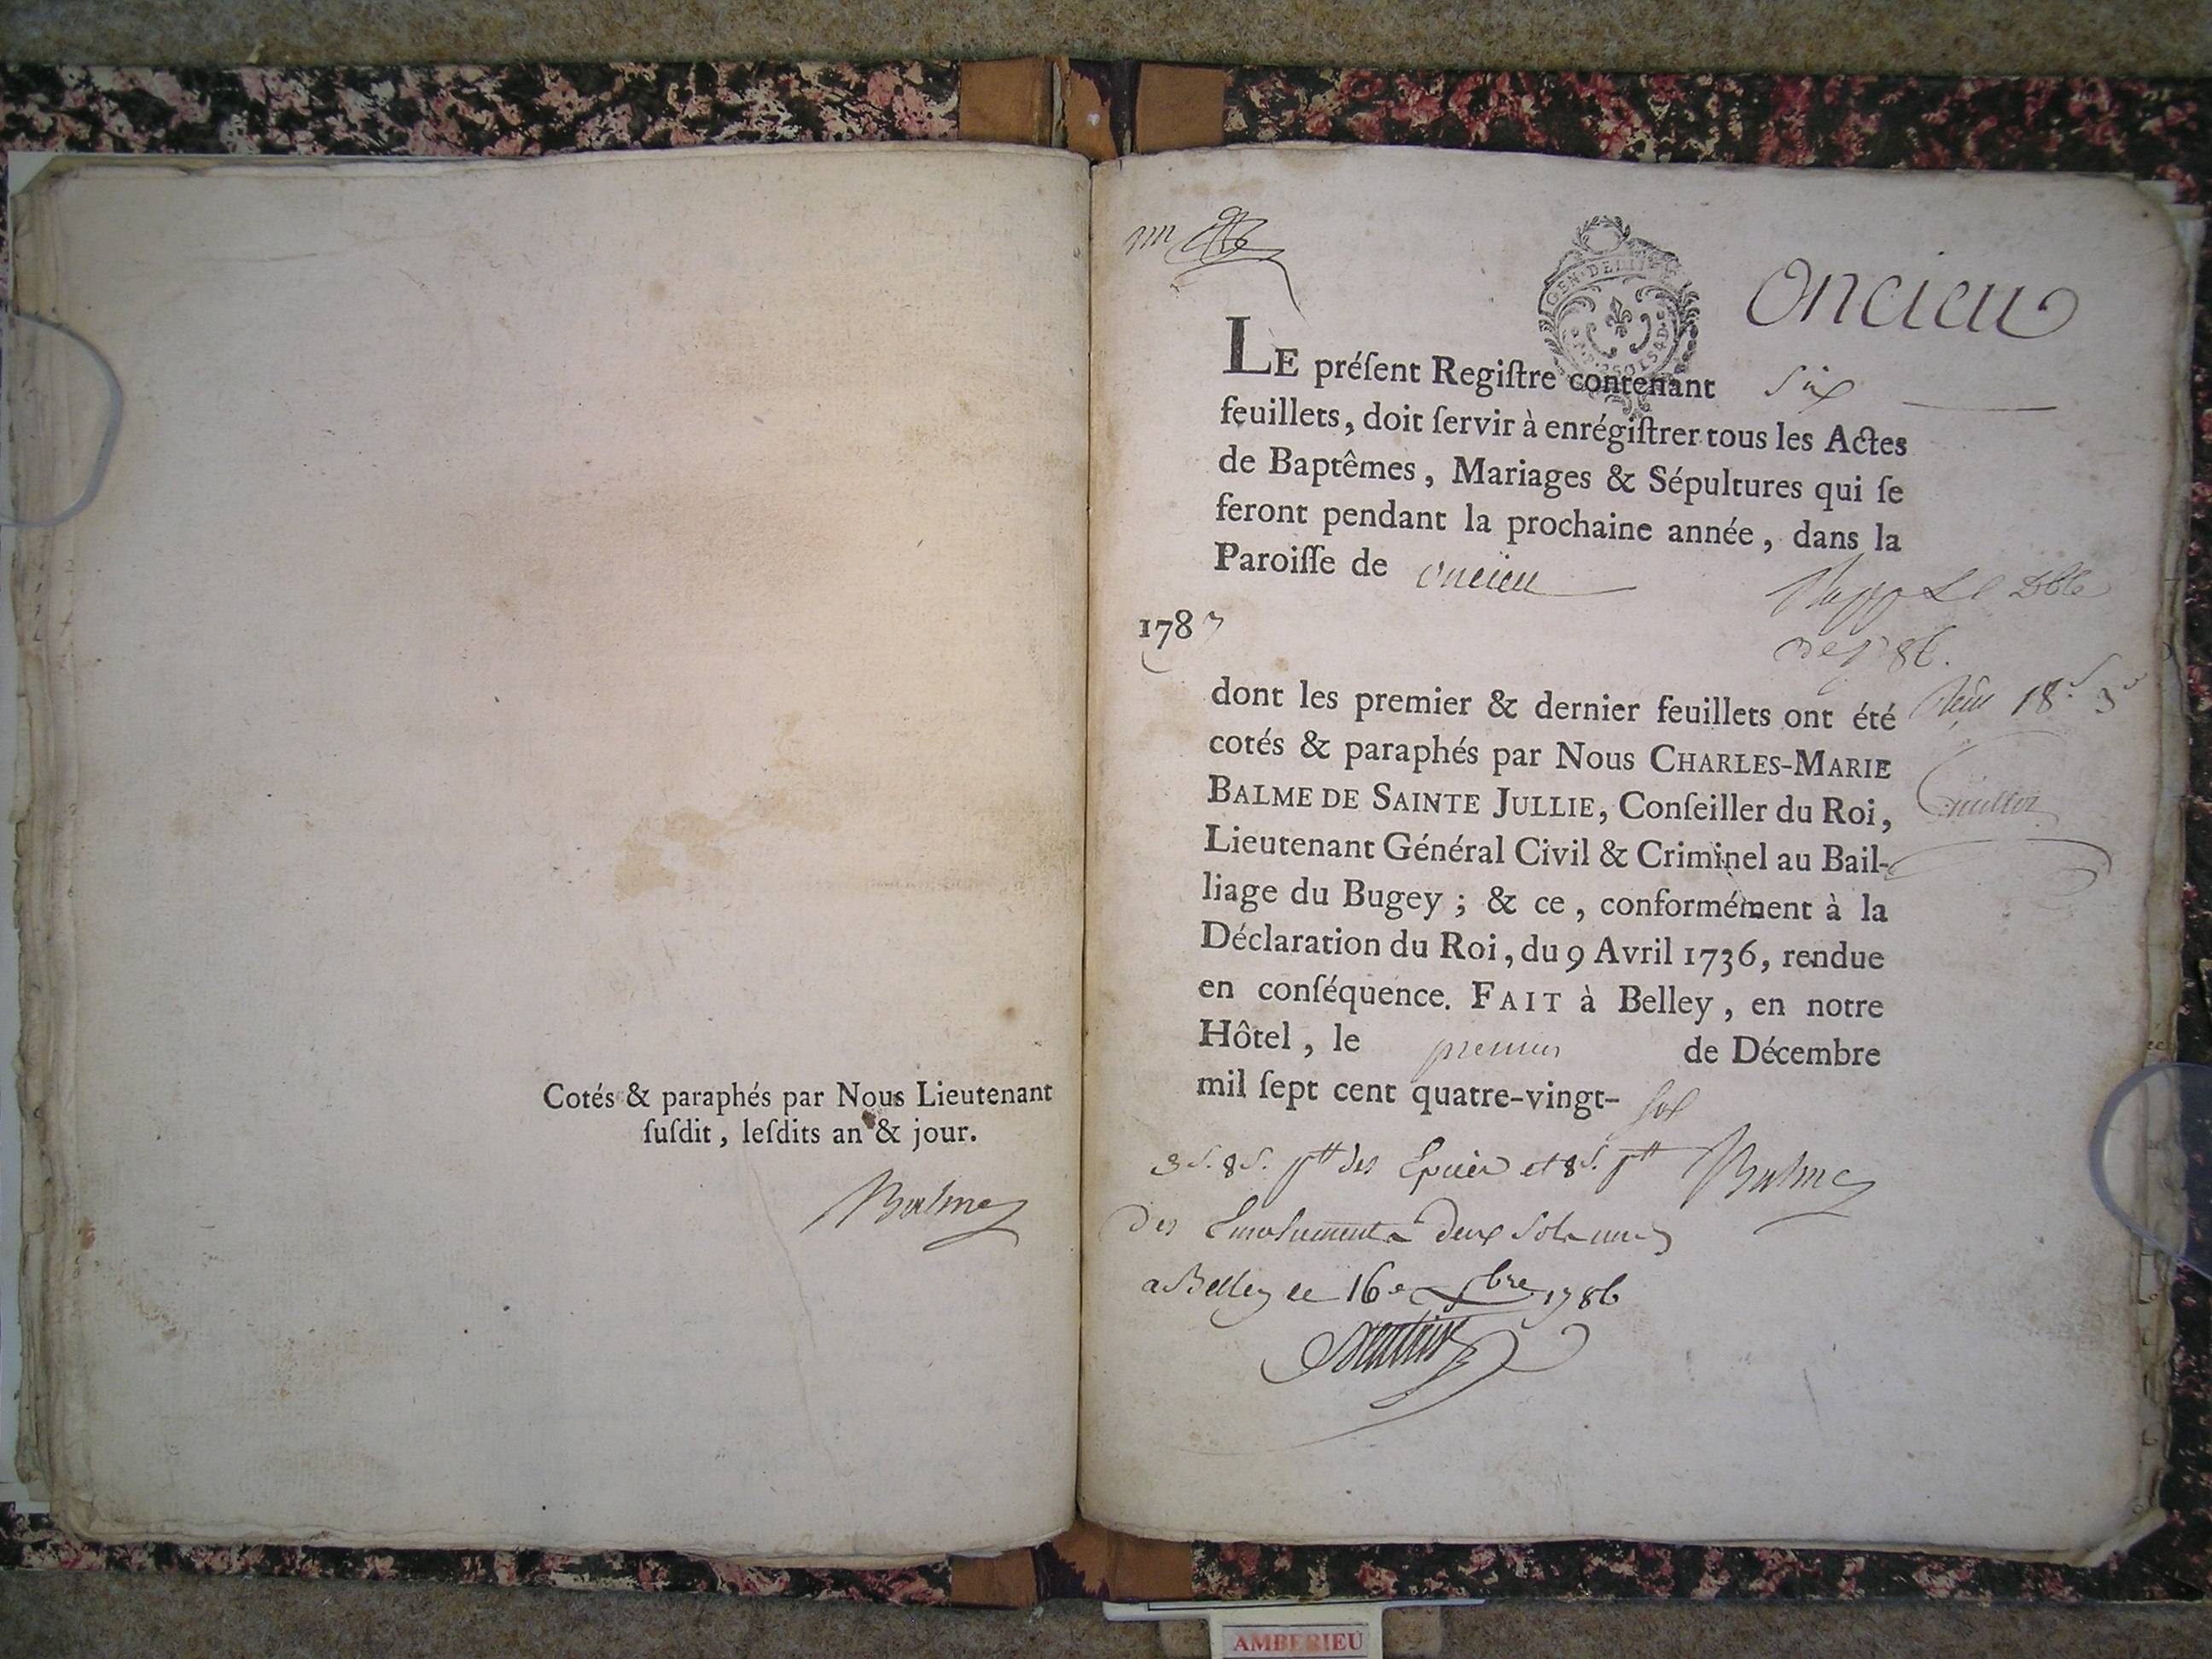 Cotés & paraphés par Nous Lieutenant
ſuſdit, leſdits an & jour.
Balme
GEN · DE
Oncieu
LE préſent Regiſtre contenant six
feuillets, doit ſervir à enrégiſtrer tous les Actes
de Baptêmes, Mariages & Sépultures qui ſe
feront pendant la prochaine année, dans la
Paroiſſe de oncieu
1787
dont les premier & dernier feuillets ont été
cotés & paraphés par Nous CHARLES-MARIE
BALME DE SAINTE JULLIE, Conſeiller du Roi,
Lieutenant Général Civil & Criminel au Bail-
liage du Bugey ; & ce, conformément à la
Déclaration du Roi, du 9 Avril 1736, rendue
en conſéquence. FAIT à Belley, en notre
Hôtel, le premier de Décembre
mil ſept cent quatre-vingt- six
Balme
a Belley le 16e Xbre 1786
AMBERIEU